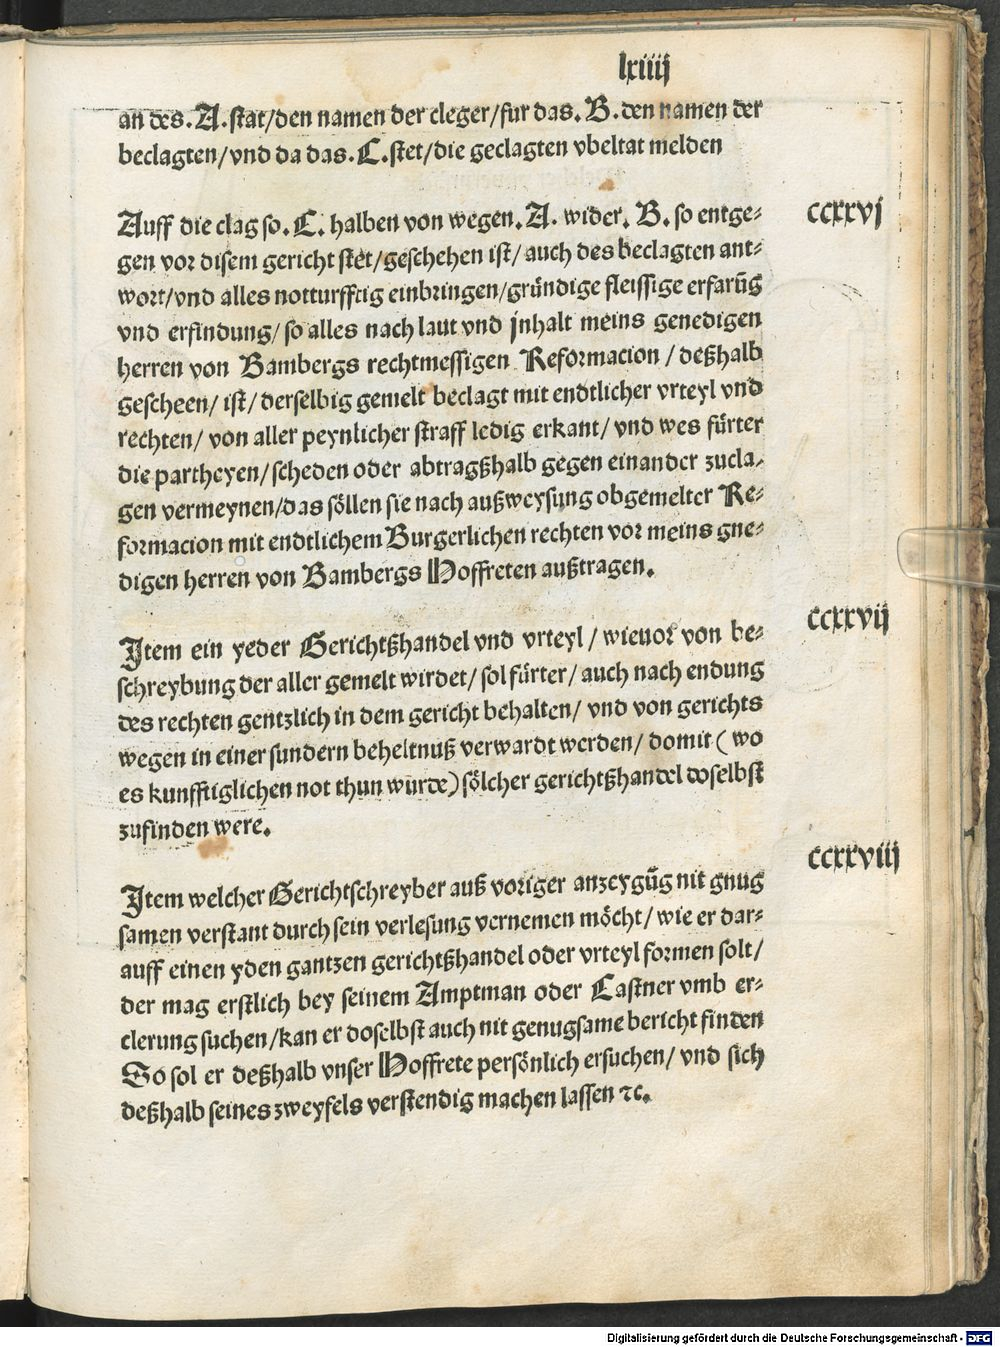 lxiiij
an des. A. stat/den namen der cleger/fur das. B. den namen der
beclagten/vnd da das. C. stet/die geclagten vbeltat melden
ccxxvj
Auff die clag so. C. halben von wegen. A. wider. B. so entge⸗
gen vor disem gericht stet/geschehen ist/auch des beclagten ant⸗
wort/vnd alles notturfftig einbringen/gründige fleissige erfarūg
vnd erfindung/so alles nach laut vnd jnhalt meins genedigen
herren von Bambergs rechtmessigen Reformacion/deßhalb
gescheen/ist/derselbig gemelt beclagt mit endtlicher vrteyl vnd
rechten/von aller peynlicher straff ledig erkant/vnd wes fürter
die partheyen/scheden oder abtragßhalb gegen einander zucla⸗
gen vermeynen/das söllen sie nach außweysung obgemelter Re⸗
formacion mit endtlichem Burgerlichen rechten vor meins gne⸗
digen herren von Bambergs Hoffreten außtragen.
ccxxvij
Item ein yeder Gerichtßhandel vnd vrteyl/wieuor von be⸗
schreybung der aller gemelt wirdet/sol fürter/auch nach endung
des rechten gentzlich in dem gericht behalten/vnd von gerichts
wegen in einer sundern beheltnuß verwardt werden/domit (wo
es kunfftiglichen not thun wurde) sölcher gerichtßhandel doselbst
zufinden were.
ccxxviij
Item welcher Gerichtschreyber auß voriger anzeygūg nit gnug
samen verstant durch sein verlesung vernemen möcht/wie er dar⸗
auff einen yden gantzen gerichtßhandel oder vrteyl formen solt/
der mag erstlich bey seinem Amptman oder Castner vmb er⸗
clerung suchen/kan er doselbst auch nit genugsame bericht finden
So sol er deßhalb vnser Hoffrete persönlich ersuchen/vnd sich
deßhalb seines zweyfels verstendig machen lassen ⁊c.
Digitalisierung gefördert durch die Deutsche Forschungsgemeinschaft - DFG